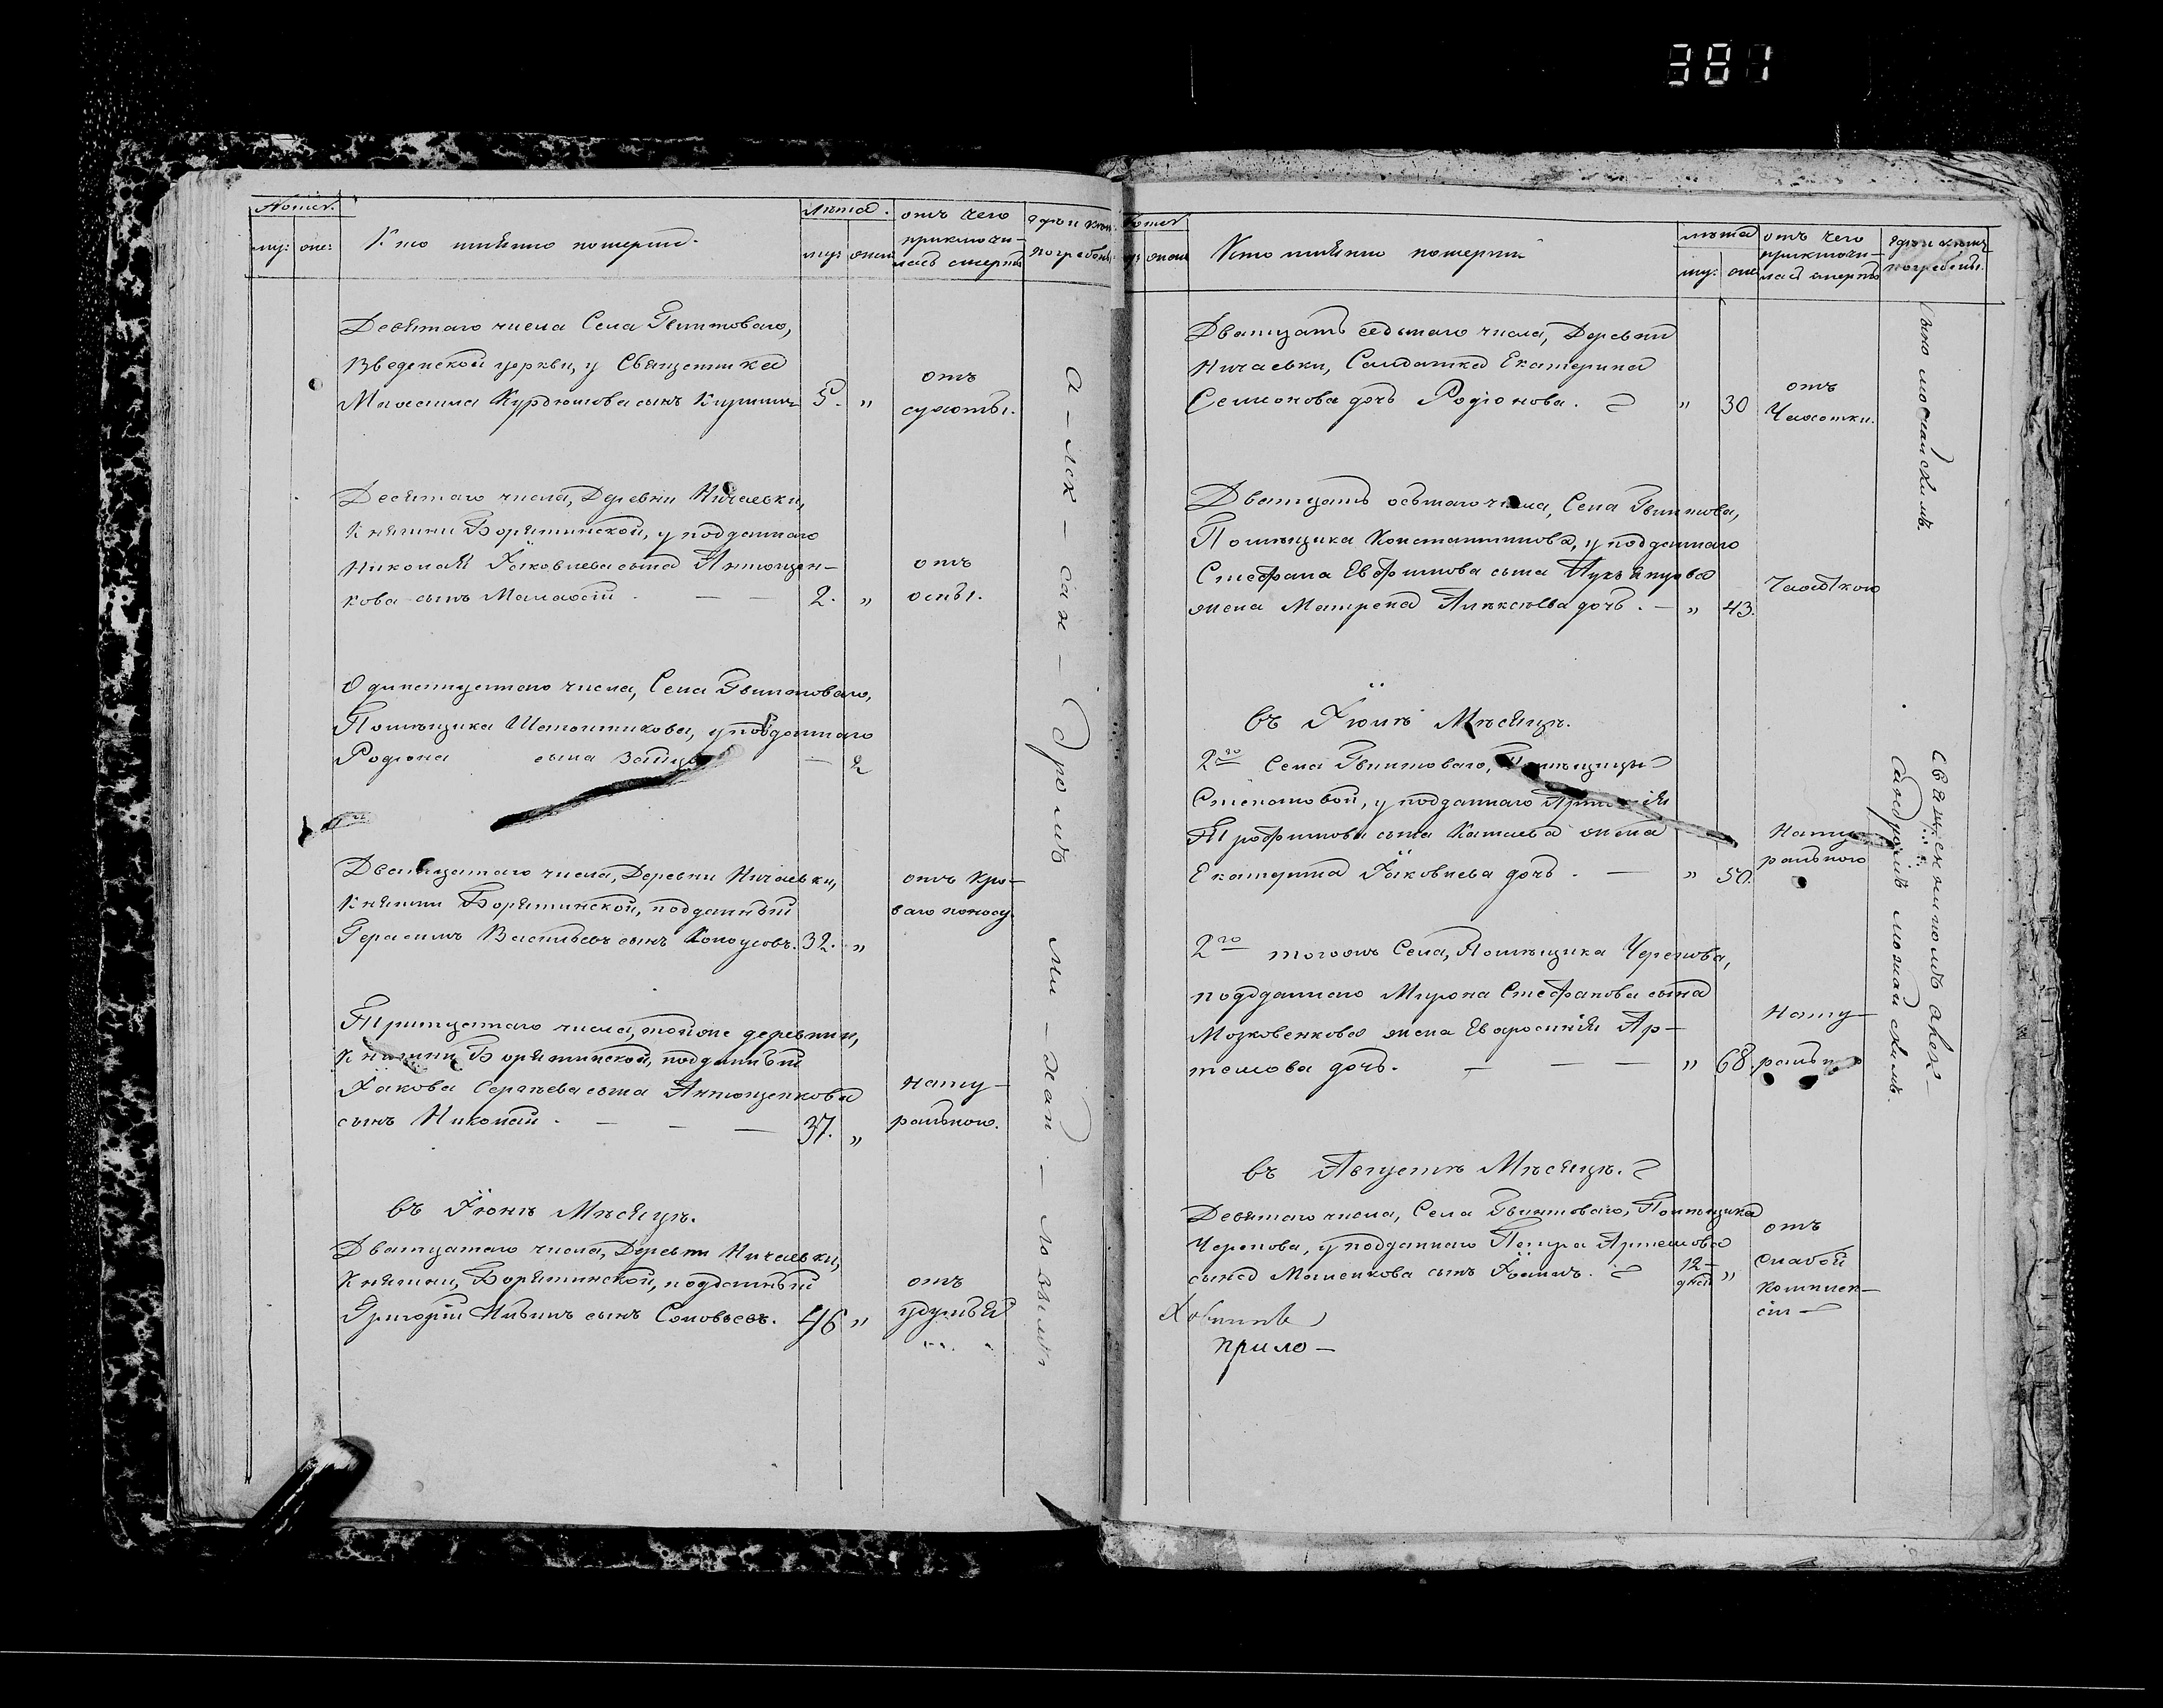 381
Номеръ.
му: | же:
Кто имянно померли.
лѣта.
му: | жен
отъ чего приключи-
лась смерть
гдѣ и кѣмъ
погребены.
Девятаго числа Села Гвинтоваго,
Введенской церкви, у Священника
Максима Курдюмова сынъ Кириллъ 5. "
отъ
сухоты.
Десятаго числа, Деревни Ничаевки,
Княгини Борятинской, у подданнаго
Николая Іаковлева сына Антощен-
кова сынъ Малахій. — — 2. "
отъ
оспы.
Одинатцетаго числа, Села Гвинтоваго,
Помѣщика Шапошникова, у подданнаго
Родіона сына Зайцова — 2
Дватцатаго числа, Деревни Ничаевки,
Княгини Борятинской, подданный
Герасимъ Васильевъ сынъ 32. "
отъ Кро-
ваго поносу.
Тритцетаго числа, тойже деревни,
Княгини Борятинской, подданный
Іакова Сергѣева сына Антощенкова
сынъ Николай. — — — 37. "
Нату-
ральною.
въ Іюнѣ Мѣсяцѣ.
Дватцатаго числа, Деревни Ничаевки,
Княгини, Борятинской, подданный
Григорій сынъ Соловьевъ. 46 "
отъ
удушья
а - лек - сан - дромъ ми - хай - ло - вымъ
Номеръ
му: | жен
Кто имянно померли
лѣта
му: | же
отъ чего
приключи-
лась смерть
гдѣ и кѣмъ
погребены.
Дватцать седьмаго числа, Деревни
Ничаевки, Салдатка Екатерина
Семіонова дочь Родіонова. " 30
отъ
Чахотки.
Дватцать осьмаго числа, Села Гвинтова,
Помѣщика Константинова, у подданнаго
Стефана Евфимова сына
жена Матрена Алексѣева дочь. — " 43.
Чахоткою
въ Іюлѣ Мѣсяцѣ.
2го Села Гвинтоваго, Помѣщицы
Степановой, у подданнаго
Трофимова сына жена
Екатерина Іаковлева дочь. — " 50.
Нату-
ральною
2го тогожъ Села, Помѣщика Черепова,
подданнаго Мирона Стефанова сына
Мозковенкова жена Евфросинія Ар-
темова дочь. — — — " 68.
Нату-
ральною
въ Августѣ Мѣсяцѣ.
Девятаго числа, Села Гвинтоваго, Помѣщика
Черепова, у подданнаго Петра Артемова
сына сынъ Іоаннъ. 12
дней "
отъ
слабой
комплек-
сіи —
прило -
Священникомъ Алек-
сандромъ